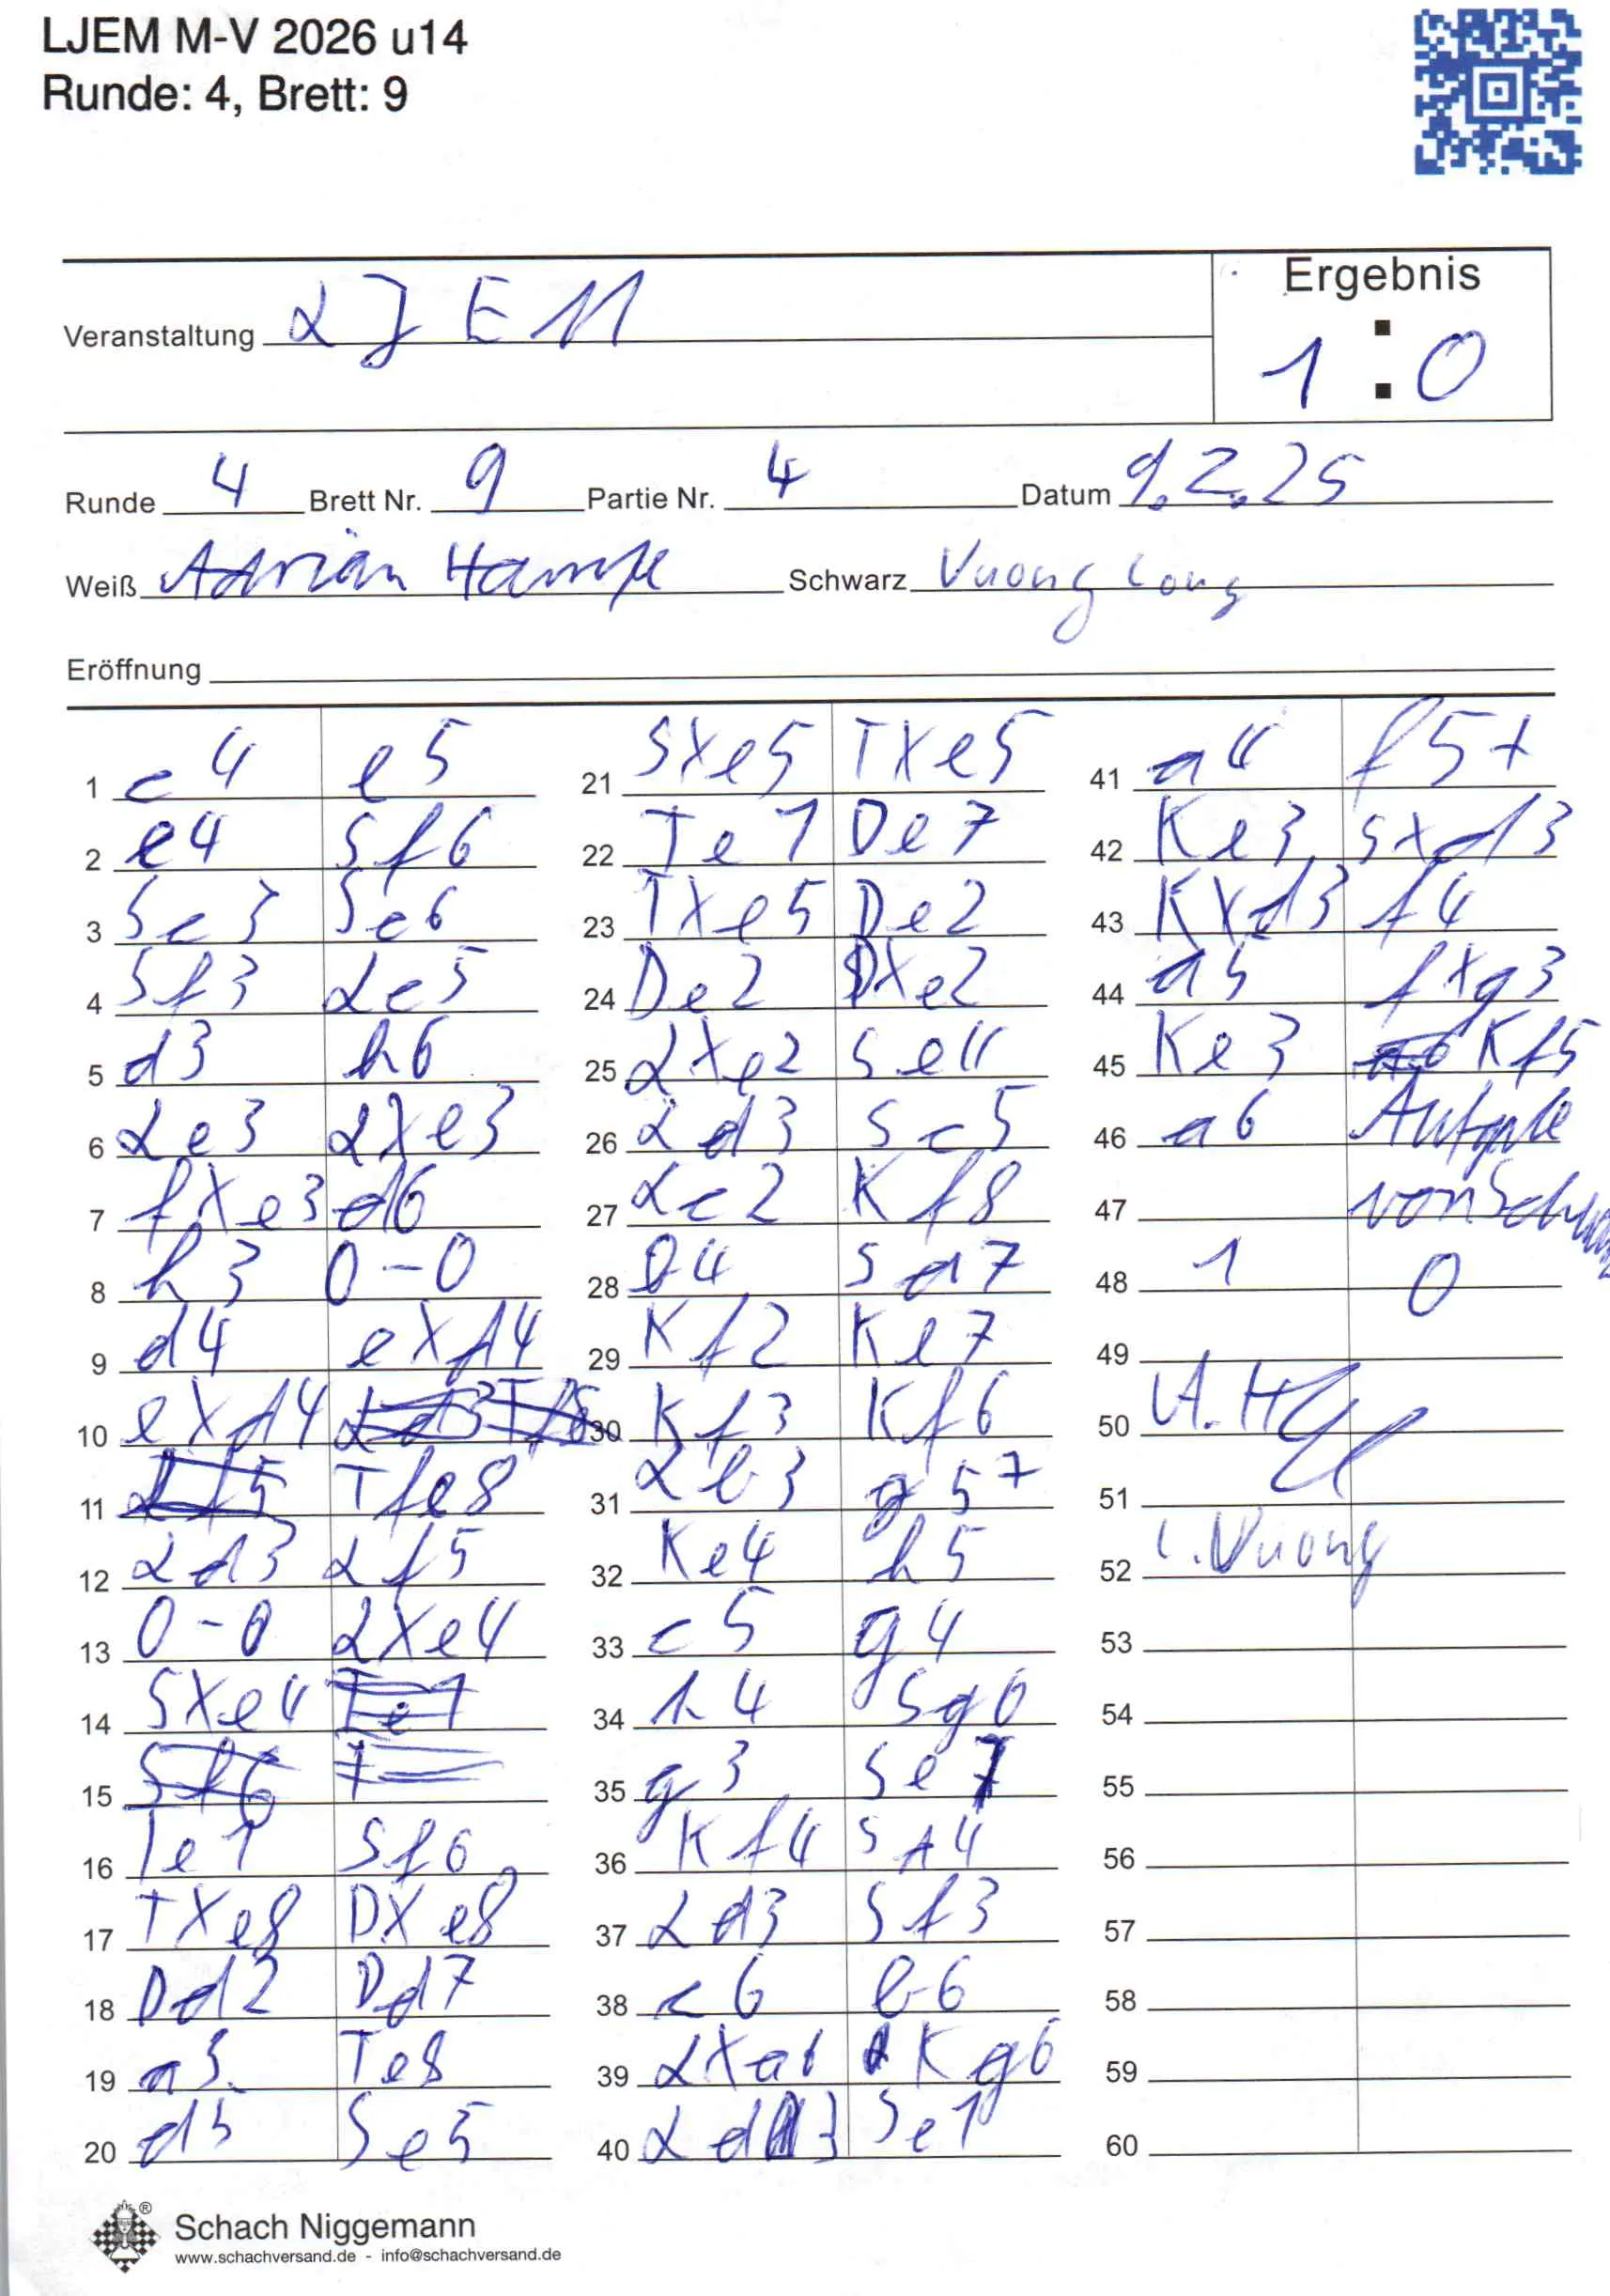 LJEM M-V 2026 u14
Runde: 4, Brett: 9
Ergebnis
Veranstaltung LJEM
1 : 0
Runde 4 Brett Nr. 9 Partie Nr. 4 Datum 9.2.25
Weiß Adrian Hampe Schwarz Vuong Long
Eröffnung
1 c4 e5
2 e4 Sf6
3 Sc3 Sc6
4 Sf3 Lc5
5 d3 h6
6 Le3 LXe3
7 fXe3 d6
8 h3 0-0
9 d4 eXd4
10 eXd4
11 Tfe8
12 Ld3 Lf5
13 0-0 LXe4
14 SXe4
15
16 Te1 Sf6
17 TXe8 DXe8
18 Dd2 Dd7
19 a3 Te8
20 d5 Se5
21 SXe5 TXe5
22 Te1 De7
23 TXe5 De2
24 De2 DXe2
25 LXe2 Se4
26 Ld3 Sc5
27 Lc2 Kf8
28 b4 Sd7
29 Kf2 Ke7
30 Kf3 Kf6
31 Lb3 g5+
32 Ke4 h5
33 c5 g4
34 h4 Sg6
35 g3 Se7
36 Kf4 Sd4
37 Ld3 Sf3
38 c6 b6
39 LXa6 Kg6
40 Ld3 Se1
41 a4 f5+
42 Ke3 Sxd3
43 KXd3 f4
44 a5 fXg3
45 Ke3 Kf5
46 a6 Aufgabe
47 von Schwarz
48 1 0
49
50 A. H
51
52 L. Vuong
53
54
55
56
57
58
59
60
Schach Niggemann
www.schachversand.de - info@schachversand.de